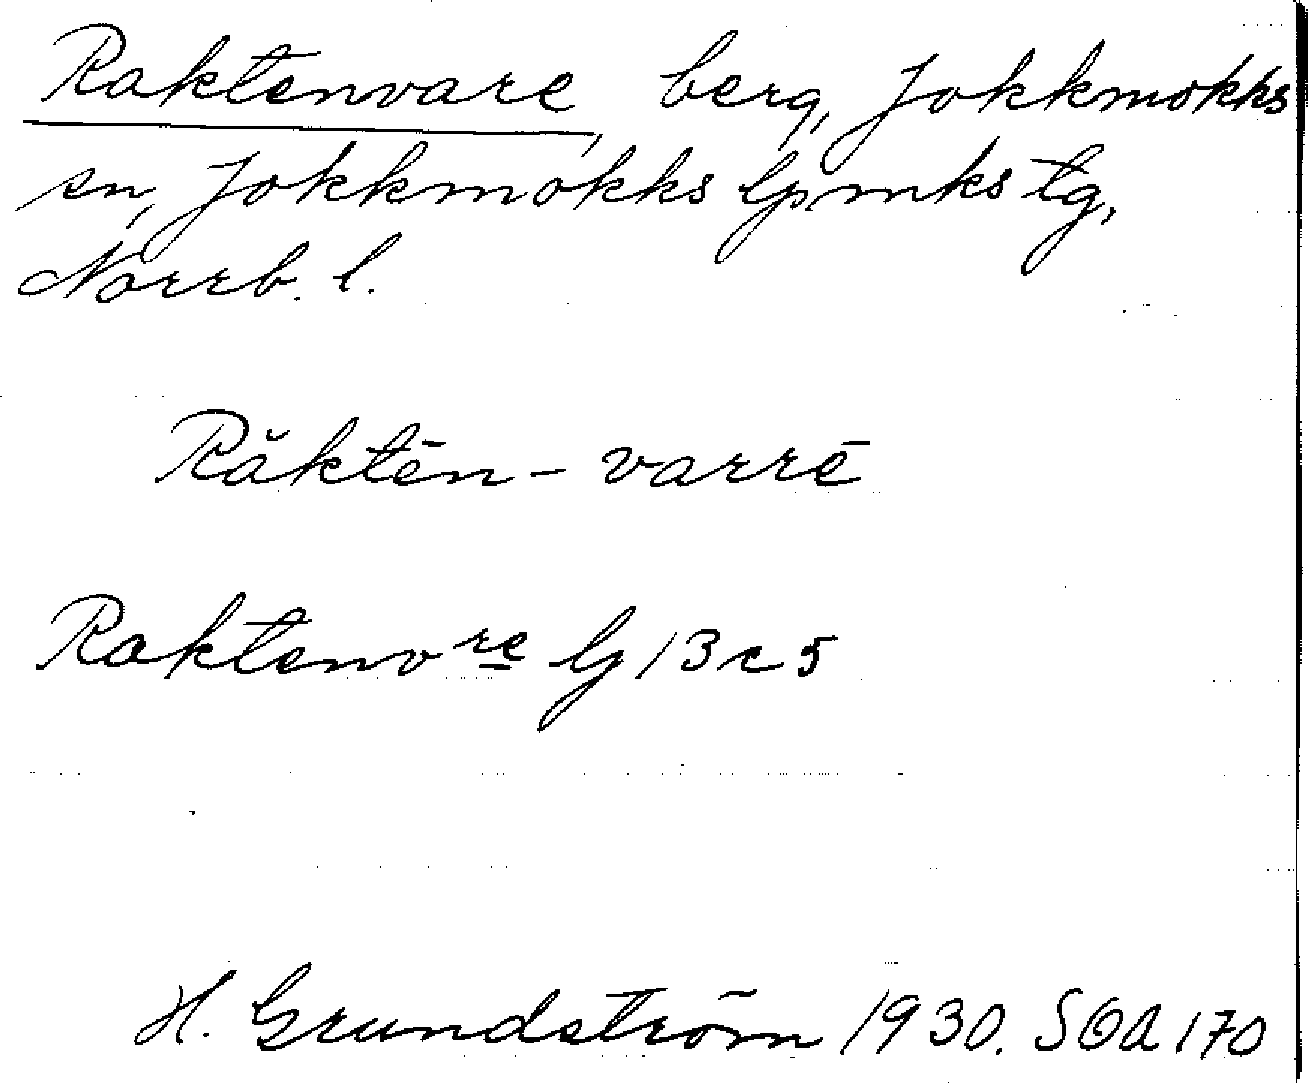 Raktenvare, berg, Jokkmokks
sn, Jokkmokks lpmks tg,
Norrb. l.
Răktēn-varrē
Raktenvre G 13 c 5
H. Grundström 1930. SOA 170